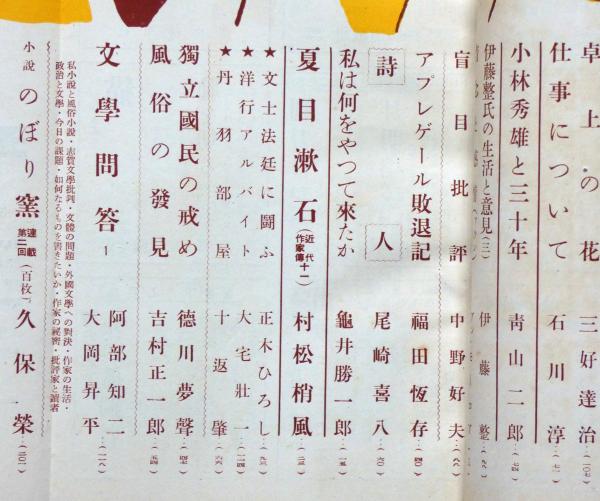 卓上の花 三好達治…(一〇七)
仕事について 石川淳…(七一)
小林秀雄と三十年 青山二郎…(七四)
伊藤整氏の生活と意見(三) 伊藤整…(九八)
盲目批評 中野好夫…(八八)
アプレゲール敗退記 福田恆存…(四〇)
詩人 尾崎喜八…(六〇)
私は何をやつて來たか 龜井勝一郎…(一五)
夏目漱石(近代作家傳十一) 村松梢風…(二三)
★文士法廷に鬪ふ 正木ひろし…(九三)
★洋行アルバイト 大宅壯一…(一一四)
★丹羽部屋 十返肇…(六六)
獨立國民の戒め 德川夢聲…(四七)
風俗の發見 吉村正一郎…(五四)
文學問答 1 阿部知二 大岡昇平…(一一八)
私小說と風俗小說・志賀文學批判・文體の問題・外國文學への對決・作家の生活・
政治と文學・今日の課題・如何なるものを書きたいか・作家の祕密・批評家と讀者
小說 のぼり窯 連載第二回(百枚) 久保榮…(二〇一)